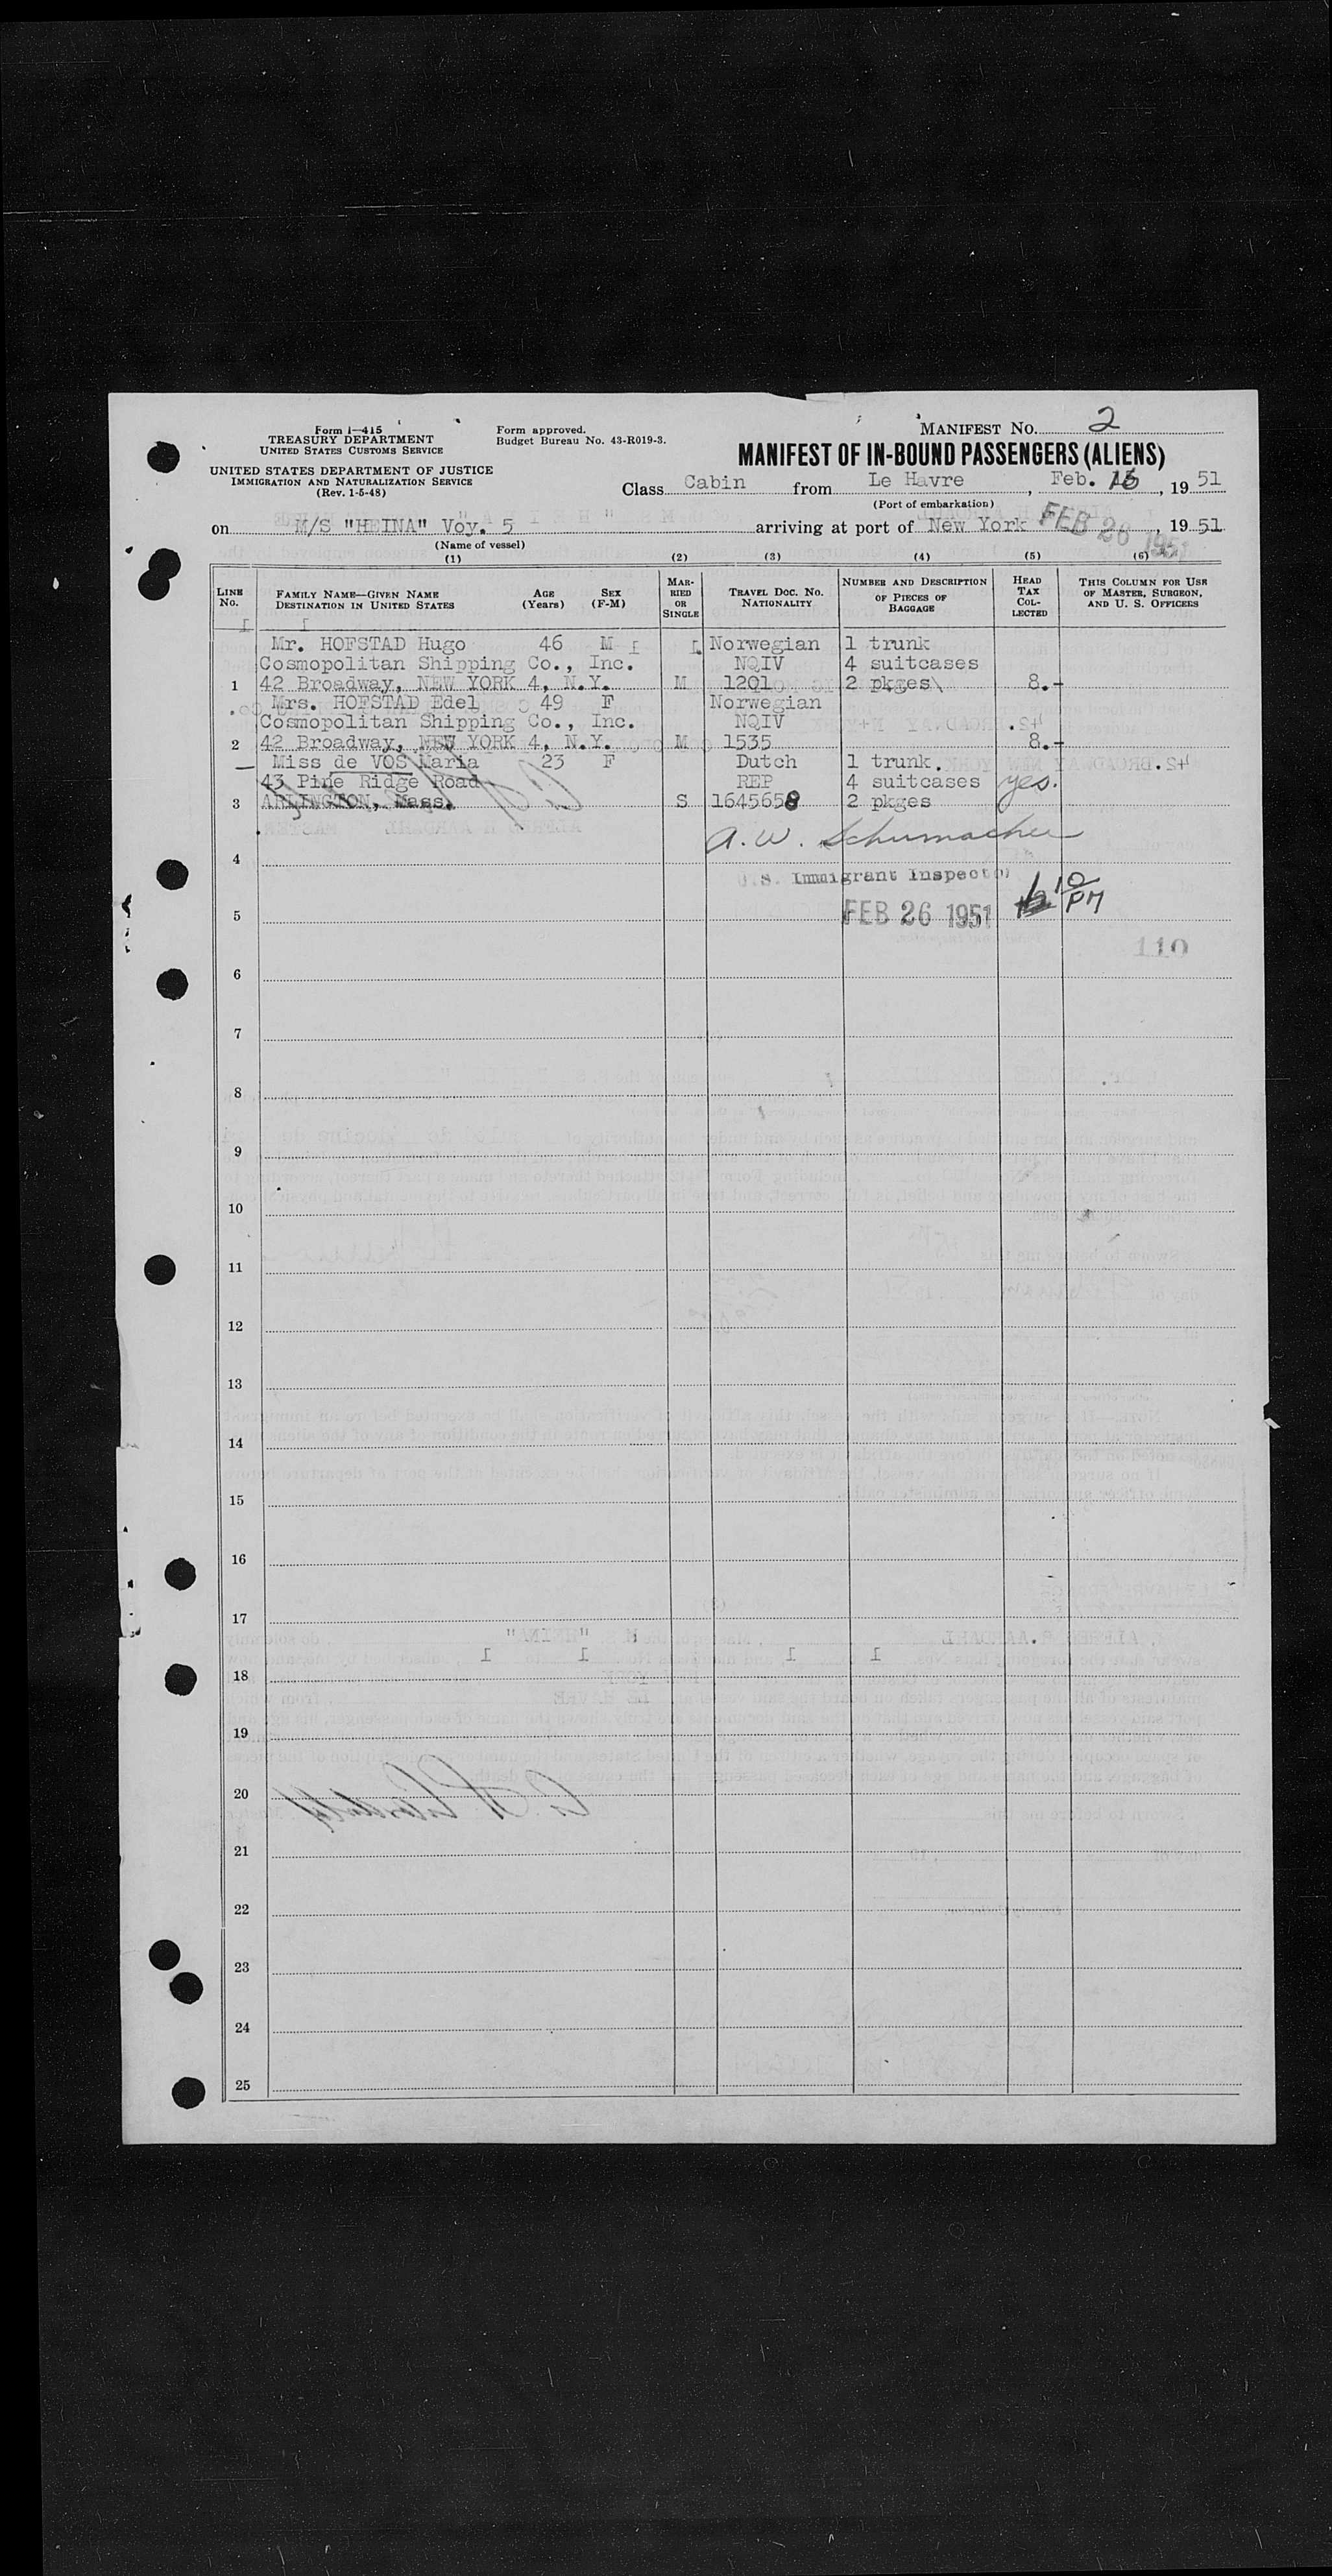 Form I-415
TREASURY DEPARTMENT
UNITED STATES CUSTOMS SERVICE
UNITED STATES DEPARTMENT OF JUSTICE
IMMIGRATION AND NATURALIZATION SERVICE
(Rev. 1-5-48)
Form approved.
Budget Bureau No. 43-R019-3.
MANIFEST NO. 2
MANIFEST OF IN-BOUND PASSENGERS (ALIENS)
Class Cabin from Le Havre, Feb. , 19 51
(Port of embarkation)
on M/S "HEINA" Voy. 5 arriving at port of New York FEB 26 1951, 19 51
(Name of vessel)
(1) (2) (3) (4) (5) (6)
LINE No. FAMILY NAME—GIVEN NAME DESTINATION IN UNITED STATES AGE (Years) SEX (F-M) MARRIED OR SINGLE TRAVEL DOC. NO. NATIONALITY NUMBER AND DESCRIPTION OF PIECES OF BAGGAGE HEAD TAX COLLECTED THIS COLUMN FOR USE OF MASTER, SURGEON, AND U. S. OFFICERS
Mr. HOFSTAD Hugo 46 M Norwegian 1 trunk
Cosmopolitan Shipping Co., Inc. NQIV 4 suitcases
1 42 Broadway, NEW YORK 4, N.Y. M 1201 2 pkges 8.-
Mrs. HOFSTAD Edel 49 F Norwegian
Cosmopolitan Shipping Co., Inc. NQIV
2 42 Broadway, NEW YORK 4, N.Y. M 1535 8.-
Miss de VOS Maria 23 F Dutch 1 trunk.
43 Pine Ridge Road REP 4 suitcases yes.
3 ARLINGTON, Mass. S 1645658 2 pkges
A. W. Schumacher
4
U.S. Immigrant Inspector
5 FEB 26 1951 10 PM
110
6
7
8
9
10
11
12
13
14
15
16
17
18
19
20
21
22
23
24
25